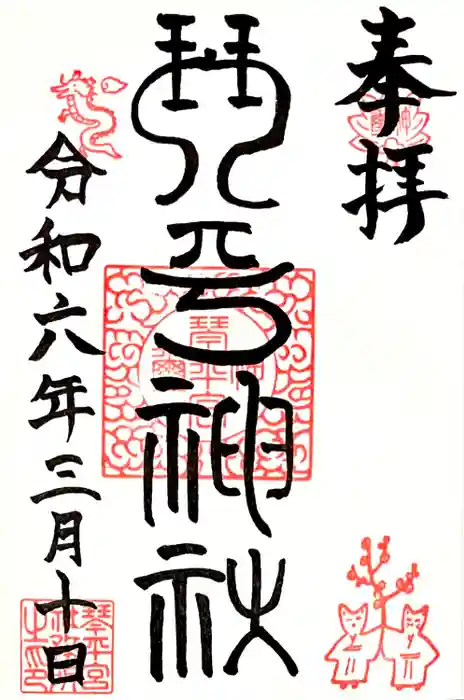 奉拝
琴平神社
令和六年三月十日
琴平宮